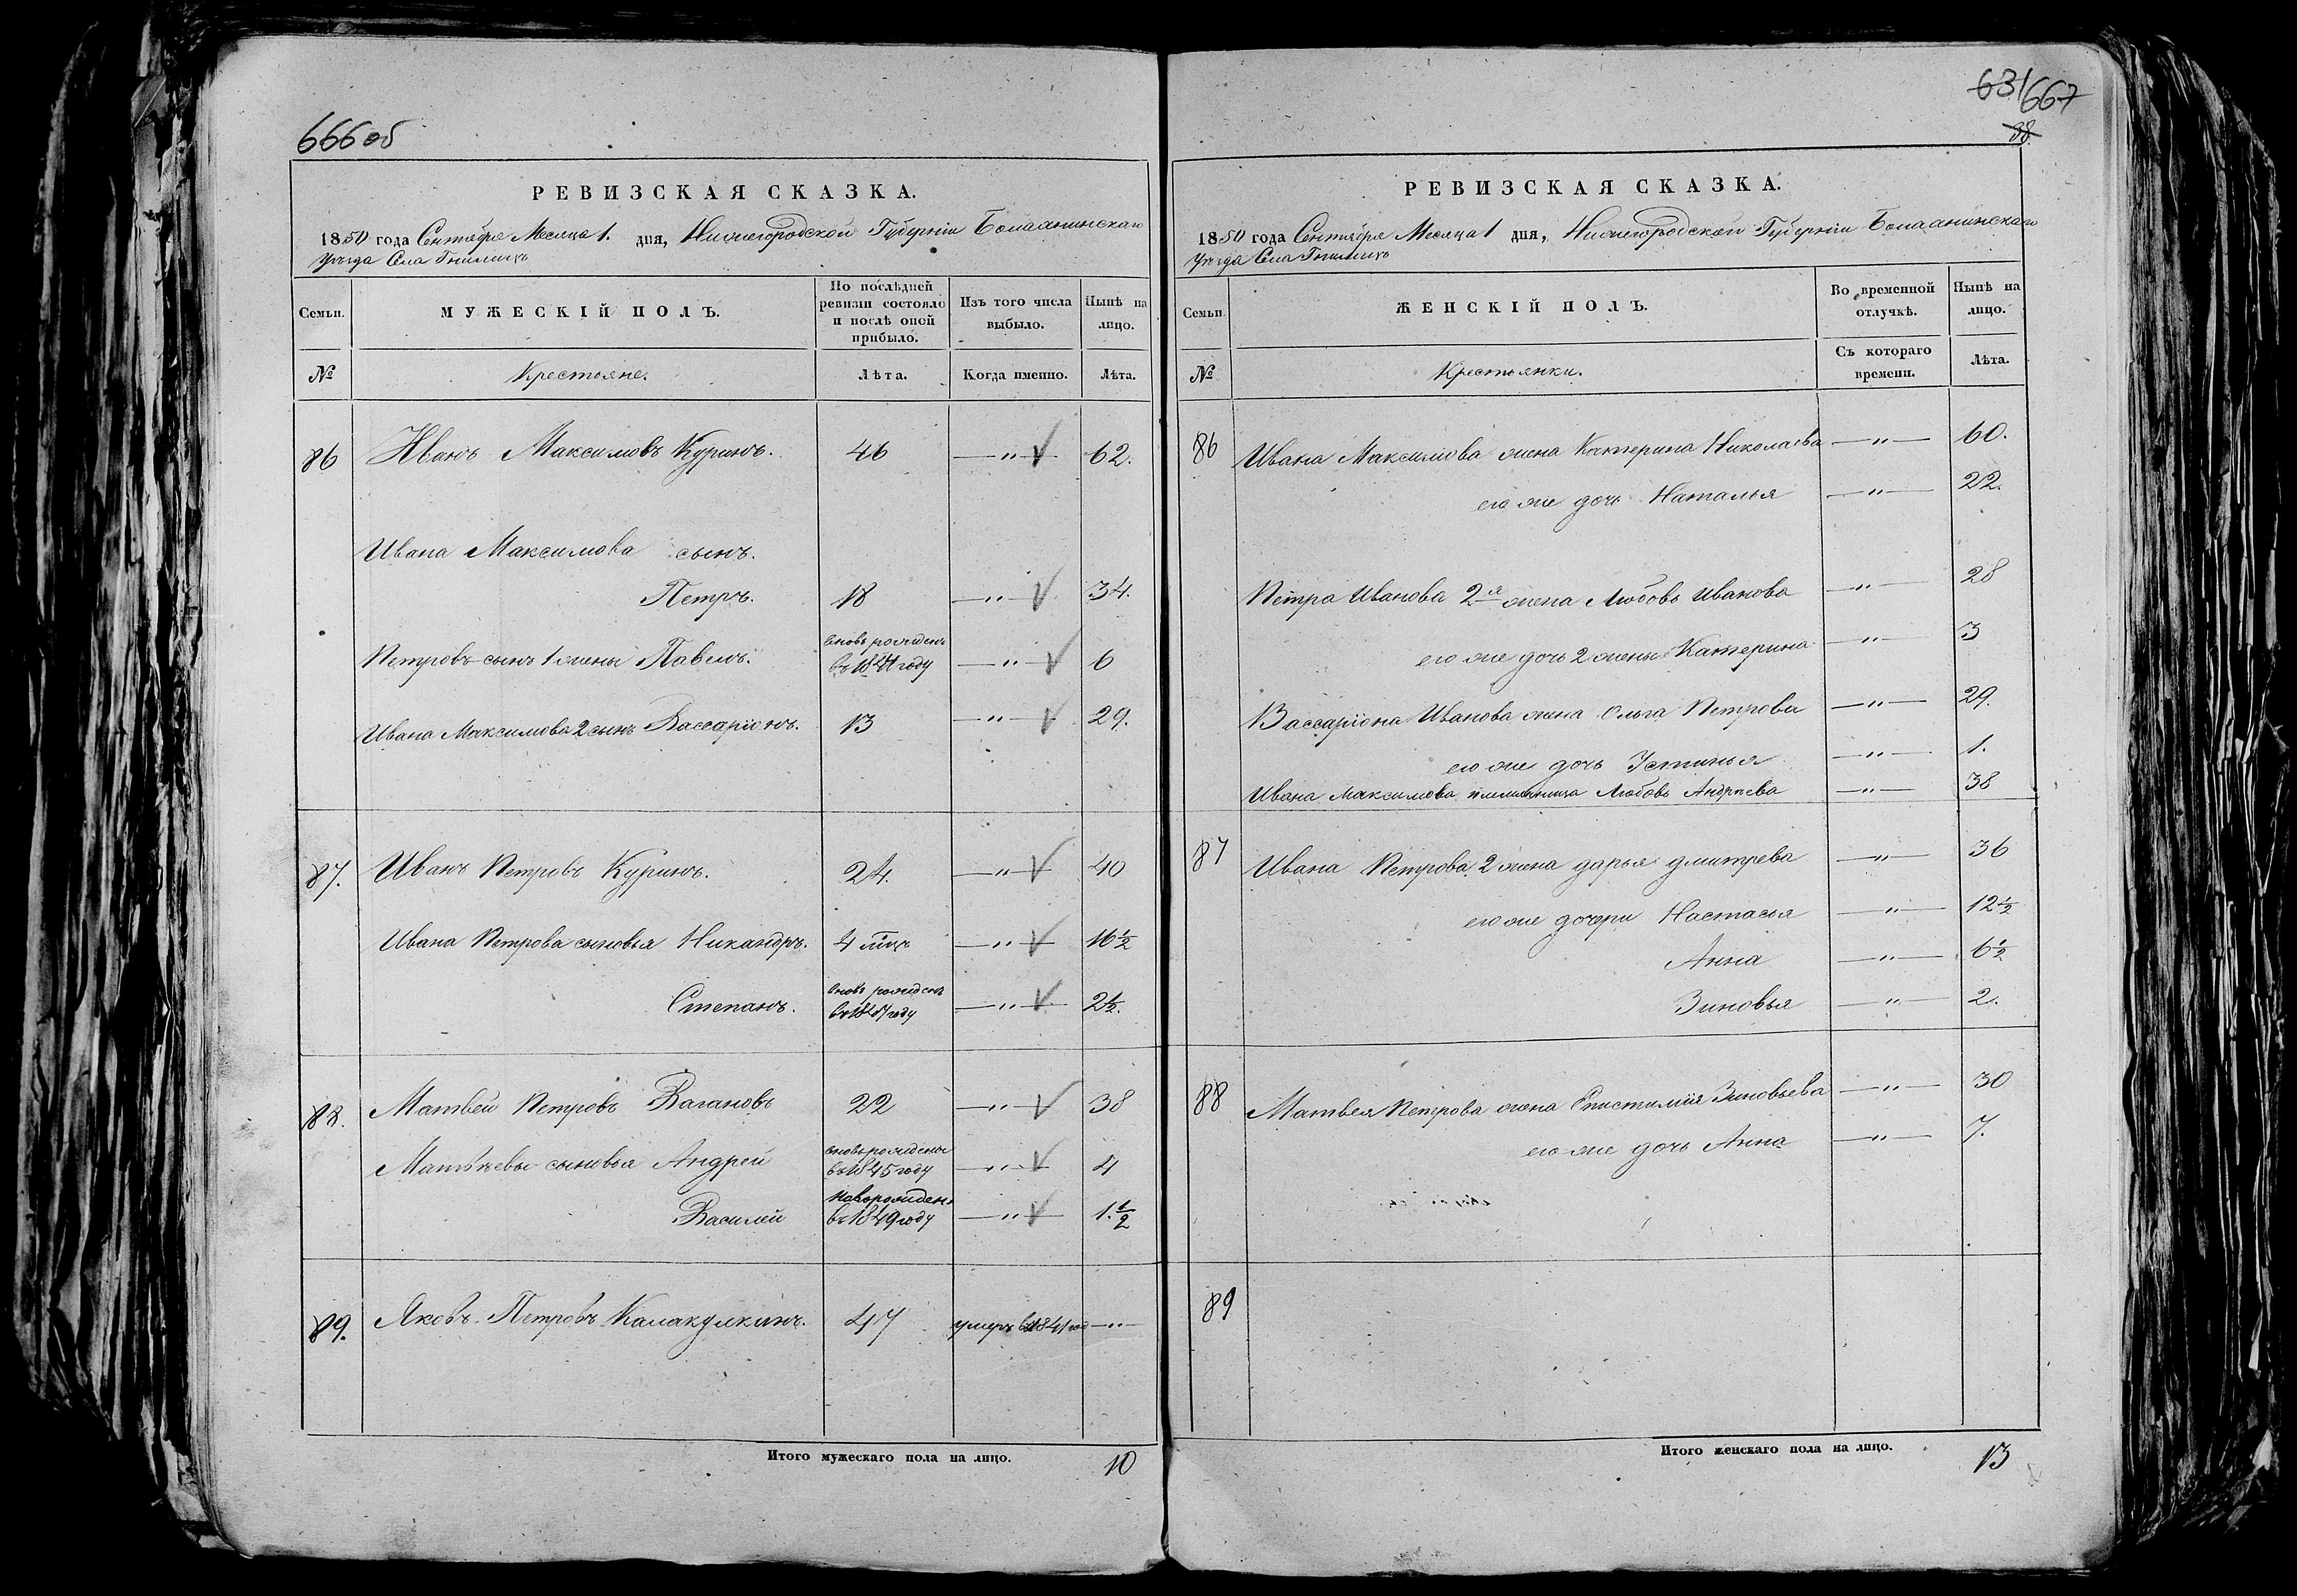 666 об
РЕВИЗСКАЯ СКАЗКА.
1850 года Сентября Месяца 1. дня, Нижегородской Губерніи Балахнинскаго
Уѣзда Села Гнилицъ
Семьи.
МУЖЕСКІЙ ПОЛЪ.
По послѣдней ревизіи состояло и послѣ оной прибыло.
Изъ того числа выбыло.
Нынѣ на лицо.
№
Крестьяне.
Лѣта.
Когда именно.
Лѣта.
86 Иванъ Максимовъ Куринъ. 46 —"— 62.
Ивана Максимова сынъ.
Петръ. 18 —"— 34.
Петровъ сынъ 1 жены Павелъ. вновь рожденъ въ 1844 году —"— 6
Ивана Максимова 2 сынъ Вассаріонъ. 13 —"— 29.
87. Иванъ Петровъ Куринъ. 24. —"— 40
Ивана Петрова сыновья Никандръ. 4 мѣц —"— 16 1/2
Степанъ. вновь рожденъ въ 1847 году —"— 2 1/2.
88. Матвей Петровъ Вагановъ 22 —"— 38
Матвѣевы сыновья Андрей вновь рожденъ въ 1845 году —"— 4
Василей новорожденъ въ 1849 году —"— 1. 1/2
89. Яковъ Петровъ Калакулкинъ. 47 умеръ въ 1841 год —"—
Итого мужескаго пола на лицо. 10
631
667
38
РЕВИЗСКАЯ СКАЗКА.
1850 года Сентября Месяца 1 дня, Нижегородской Губерніи Балахнинскаго
Уѣзда Села Гнилицъ
Семьи
ЖЕНСКІЙ ПОЛЪ.
Во временной отлучкѣ.
Нынѣ на лицо.
№
Крестьянки.
Съ котораго времени.
Лѣта.
86 Ивана Максимова жена Катерина Николаева —"— 60.
его же дочь Наталья —"— 22.
Петра Иванова 2я жена Любовь Иванова —"— 28
его же дочь 2 жены Катерина —"— 3
Вассаріона Иванова жена Ольга Петрова —"— 29.
его же дочь Устинья —"— 1.
Ивана Максимова племянница Любовь Андреева —"— 38
87 Ивана Петрова 2 жена дарья дмитрева —"— 36
его же дочери Настасья —"— 12 1/2
Анна —"— 6 1/2
Зиновья —"— 2.
88 Матвея Петрова жена Епистимія Зиновьева —"— 30
его же дочь Анна —"— 7.
89
Итого женскаго пола на лицо. 13